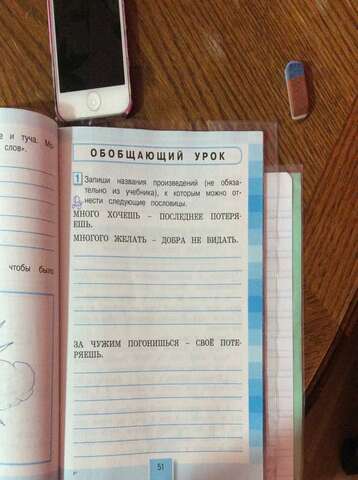 е и туча. Мо-
слов».
чтобы было
ОБОБЩАЮЩИЙ УРОК
1 Запиши названия произведений (не обяза-
тельно из учебника), к которым можно от-
нести следующие пословицы.
МНОГО ХОЧЕШЬ – ПОСЛЕДНЕЕ ПОТЕРЯ-
ЕШЬ.
МНОГОГО ЖЕЛАТЬ – ДОБРА НЕ ВИДАТЬ.
ЗА ЧУЖИМ ПОГОНИШЬСЯ – СВОЁ ПОТЕ-
РЯЕШЬ.
51